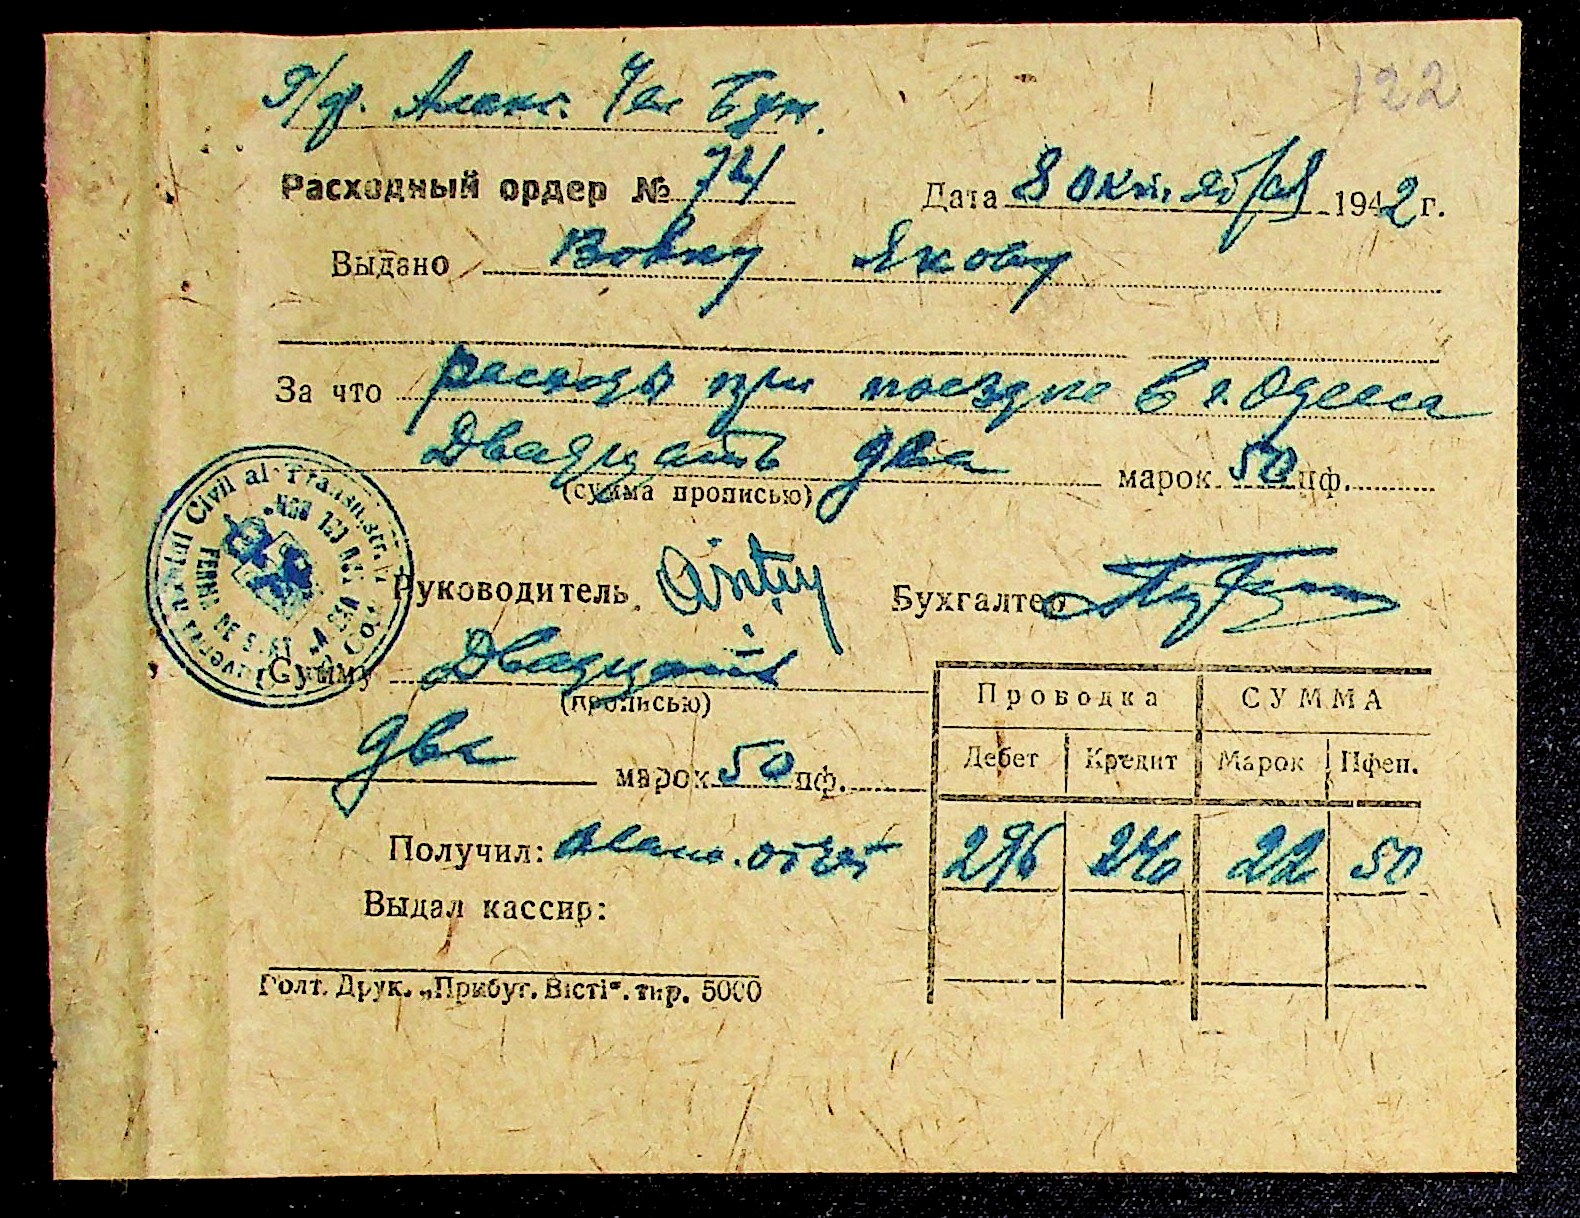 122
Расходный ордер № 74 Дата 8 октября 1942 г.
Выдано Вовку Якову
За что расходы при поездке в г. Одесса
Двадцать два марок 50 пф.
(сумма прописью)
Руководитель Бухгалтер
Сумму Двадцать
(прописью)
два марок 50 пф.
Проводка СУММА
Дебет Кредит Марок Пфен.
296 246 22 50
Получил: аванс. отчет
Выдал кассир:
Голт. Друк. „Прибуг. Вісті“. тир. 5000